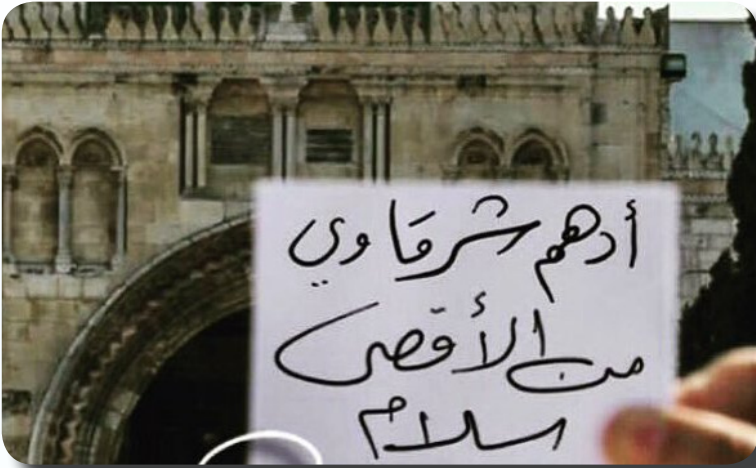 أدهم شرقاوي
من الأقصى
سلام